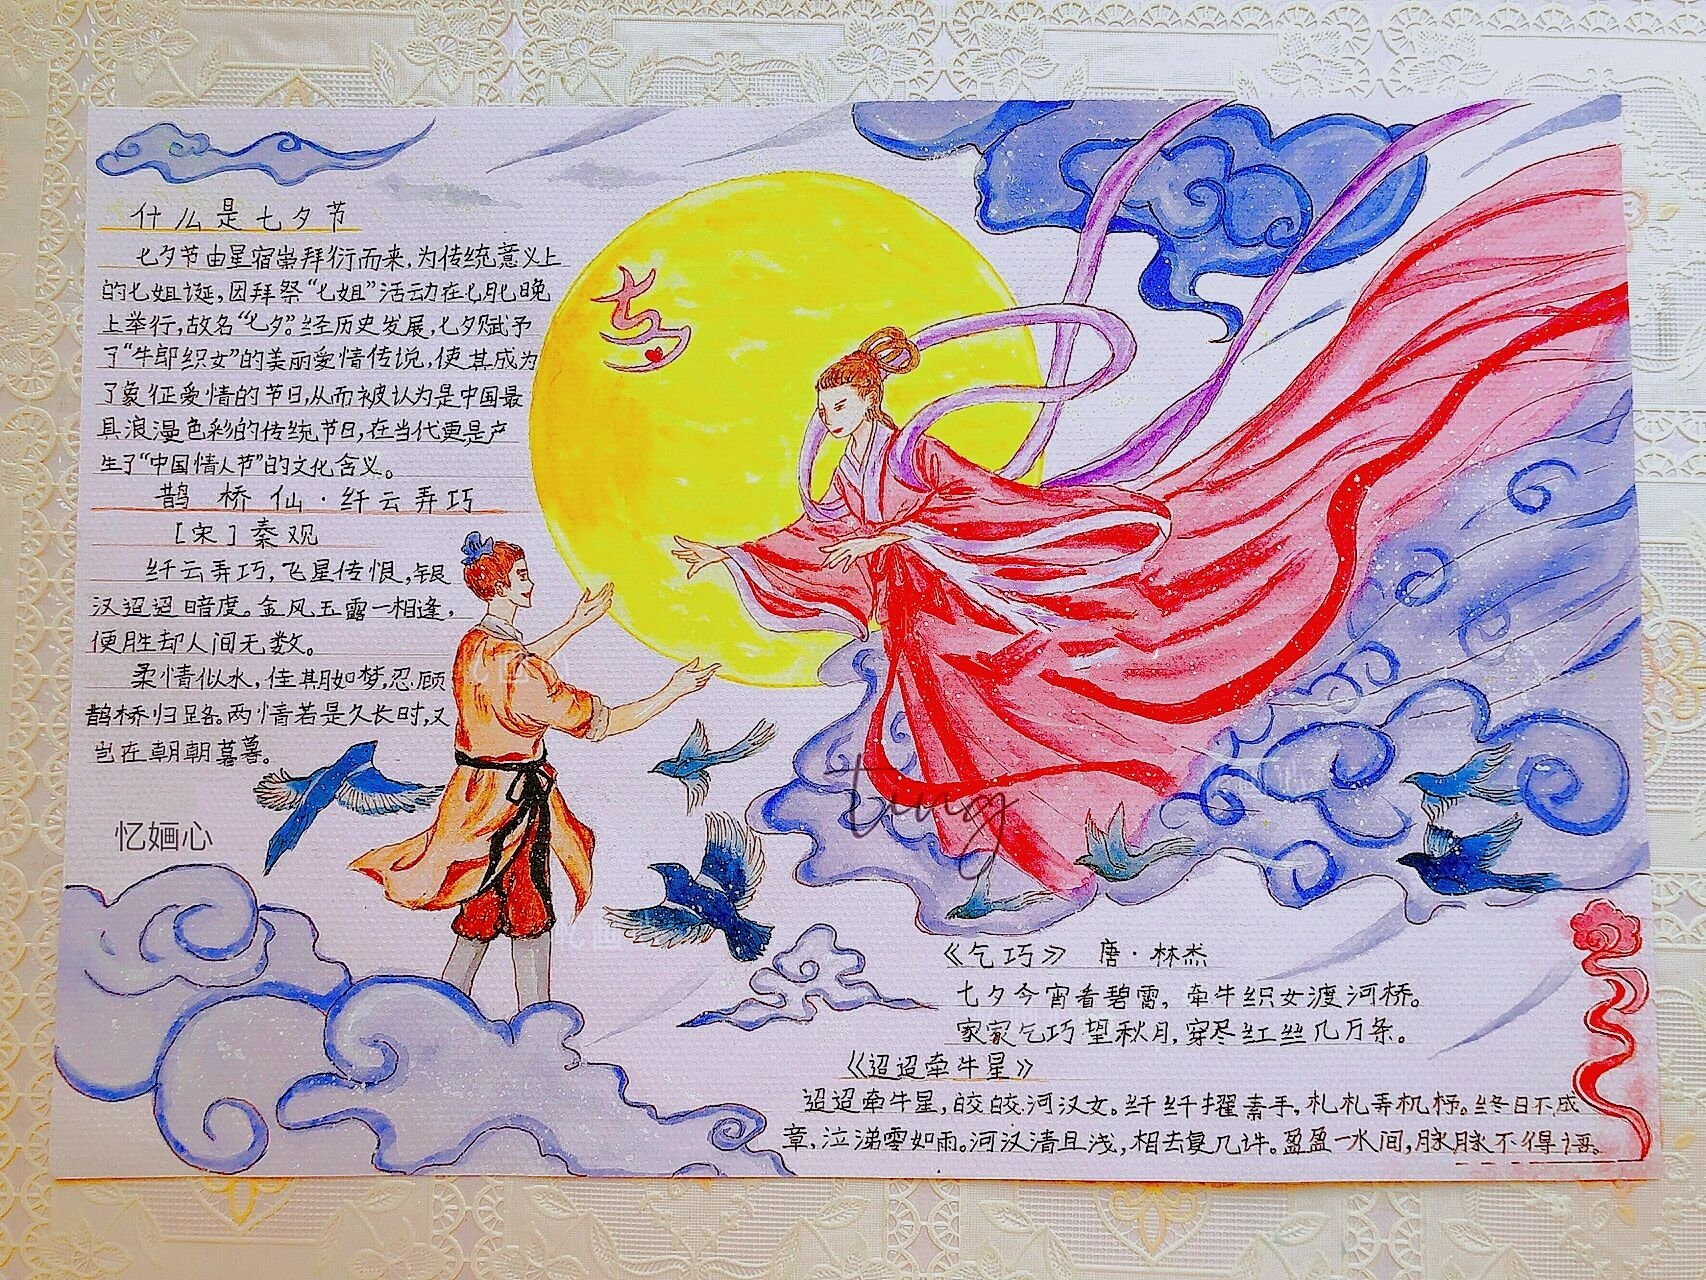 什么是七夕节
七夕节由星宿崇拜衍而来,为传统意义上
的七姐诞,因拜祭“七姐”活动在七月七晚
上举行,故名“七夕”。经历史发展,七夕赋予
了“牛郎织女”的美丽爱情传说,使其成为
了象征爱情的节日,从而被认为是中国最
具浪漫色彩的传统节日,在当代更是产
生了“中国情人节”的文化含义。
鹊桥仙·纤云弄巧
[宋]秦观
纤云弄巧,飞星传恨,银
汉迢迢暗度。金风玉露一相逢,
便胜却人间无数。
柔情似水,佳期如梦,忍顾
鹊桥归路。两情若是久长时,又
岂在朝朝暮暮。
七夕
忆婳心
ting
《乞巧》 唐·林杰
七夕今宵看碧霄,牵牛织女渡河桥。
家家乞巧望秋月,穿尽红丝几万条。
《迢迢牵牛星》
迢迢牵牛星,皎皎河汉女。纤纤擢素手,札札弄机杼。终日不成
章,泣涕零如雨。河汉清且浅,相去复几许。盈盈一水间,脉脉不得语。